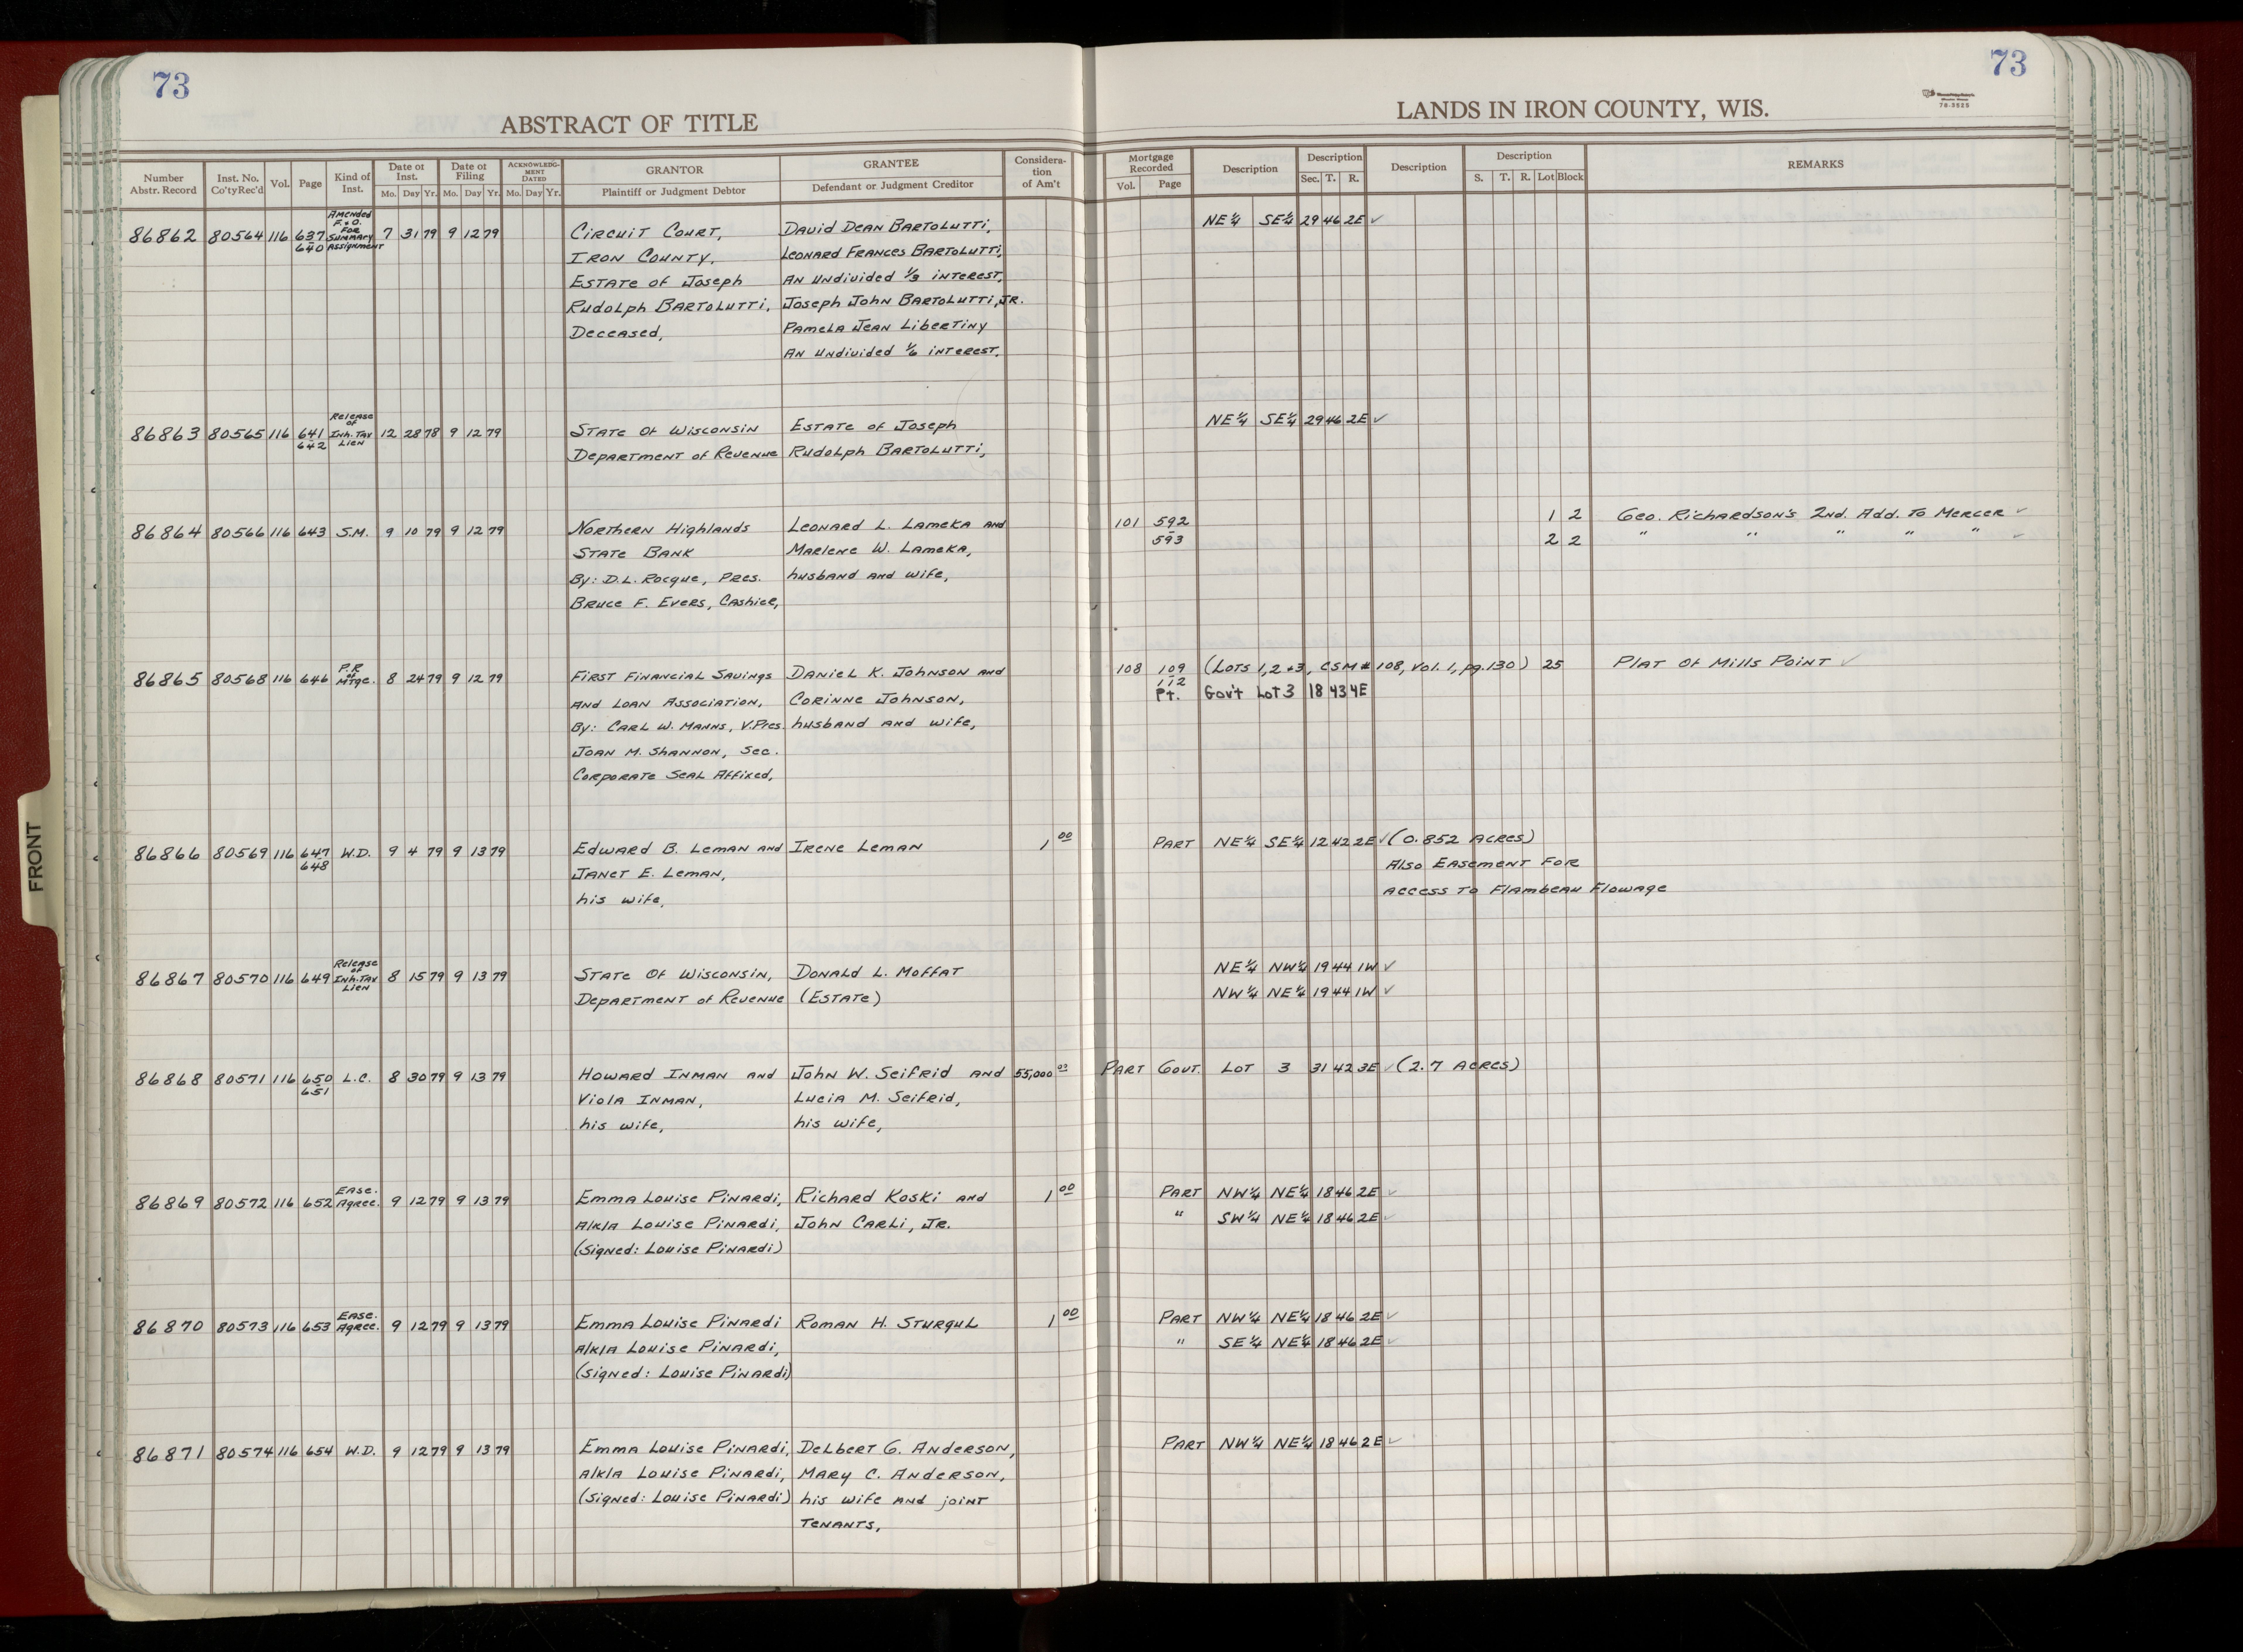 73
73
ABSTRACT OF TITLE
LANDS IN IRON COUNTY, WIS.
78-3525
Number Abstr. Record | Inst. No. Co'tyRec'd | Vol. | Page | Kind of Inst. | Date of Inst. Mo. Day Yr. | Date of Filing Mo. Day Yr. | ACKNOWLEDGMENT DATED Mo. Day Yr. | GRANTOR Plaintiff or Judgment Debtor | GRANTEE Defendant or Judgment Creditor | Consideration of Am't | Mortgage Recorded Vol. Page | Description | Description Sec. T. R. | Description | Description S. T. R. Lot Block | REMARKS
86862 80564 116 637-640 Amended F.&O. For Summary Assignment 7 31 79 9 12 79 Circuit Court, David Dean Bartolutti, NE¼ SE¼ 29 46 2E ✓
Iron County, Leonard Frances Bartolutti,
Estate of Joseph An Undivided ⅓ interest,
Rudolph Bartolutti, Joseph John Bartolutti, Jr.
Deceased, Pamela Jean Libertiny
An Undivided ⅙ interest,
86863 80565 116 641-642 Release of Inh. Tax Lien 12 28 78 9 12 79 State Of Wisconsin Estate of Joseph NE¼ SE¼ 29 46 2E ✓
Department of Revenue Rudolph Bartolutti,
86864 80566 116 643 S.M. 9 10 79 9 12 79 Northern Highlands Leonard L. Lameka and 101 592-593 1 2 Geo. Richardson's 2nd. Add. To Mercer ✓
State Bank Marlene W. Lameka, 2 2 " " " " " ✓
By: D.L. Rocque, Pres. husband and wife,
Bruce F. Evers, Cashier,
86865 80568 116 646 P.R of Mtge. 8 24 79 9 12 79 First Financial Savings Daniel K. Johnson and 108 109-112 (Lots 1,2 &3, CSM# 108, Vol. 1, pg. 130) 25 Plat Of Mills Point ✓
and Loan Association, Corinne Johnson, Pt. Gov't Lot 3 18 43 4E
By: Carl W. Manns, V.Pres. husband and wife,
Joan M. Shannon, Sec.
Corporate Seal Affixed,
86866 80569 116 647-648 W.D. 9 4 79 9 13 79 Edward B. Leman and Irene Leman 1 00 Part NE¼ SE¼ 12 42 2E ✓ (0.852 Acres)
Janet E. Leman, Also Easement For
his wife, access to Flambeau Flowage
86867 80570 116 649 Release of Inh. Tax Lien 8 15 79 9 13 79 State Of Wisconsin, Donald L. Moffat NE¼ NW¼ 19 44 1W ✓
Department of Revenue (Estate) NW¼ NE¼ 19 44 1W ✓
86868 80571 116 650-651 L.C. 8 30 79 9 13 79 Howard Inman and John W. Seifrid and 55,000 00 Part Govt. Lot 3 31 42 3E ✓ (2.7 Acres)
Viola Inman, Lucia M. Seifrid,
his wife, his wife,
86869 80572 116 652 Ease. Agree. 9 12 79 9 13 79 Emma Louise Pinardi, Richard Koski and 1 00 Part NW¼ NE¼ 18 46 2E ✓
A/K/A Louise Pinardi, John Carli, Jr. " SW¼ NE¼ 18 46 2E ✓
(Signed: Louise Pinardi)
86870 80573 116 653 Ease. Agree. 9 12 79 9 13 79 Emma Louise Pinardi Roman H. Sturgul 1 00 Part NW¼ NE¼ 18 46 2E ✓
A/K/A Louise Pinardi, " SE¼ NE¼ 18 46 2E ✓
(Signed: Louise Pinardi)
86871 80574 116 654 W.D. 9 12 79 9 13 79 Emma Louise Pinardi, Delbert G. Anderson, Part NW¼ NE¼ 18 46 2E ✓
A/K/A Louise Pinardi, Mary C. Anderson,
(Signed: Louise Pinardi) his wife and joint
Tenants,
FRONT